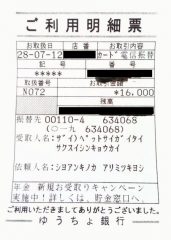 ご利用明細票
お取扱日 店番 お取引内容
28-07-12 カード電信振替
記号番号
*****
取扱番号 お取引金額
N072 *16,000
残高
振替先 00110-4 634068
(〇一九 634068)
受取人名:ザイ)ペットサイガイタイ
サクスイシンキョウカイ
依頼人名:シヨアンキノカ アリミツキヨシ
年金 新規お受取りキャンペーン
実施中!詳しくは、貯金窓口へ。
ご利用いただきましてありがとうございました。
ゆうちょ銀行